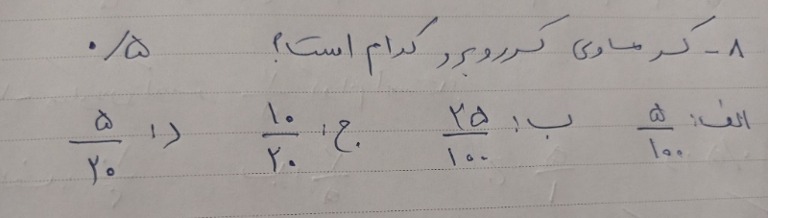 ۸- کسر مساوی کسر روبرو کدام است؟ ۰/۵
الف: ۵/۱۰۰ ب: ۲۵/۱۰۰ ج: ۱۰/۲۰ د: ۵/۲۰